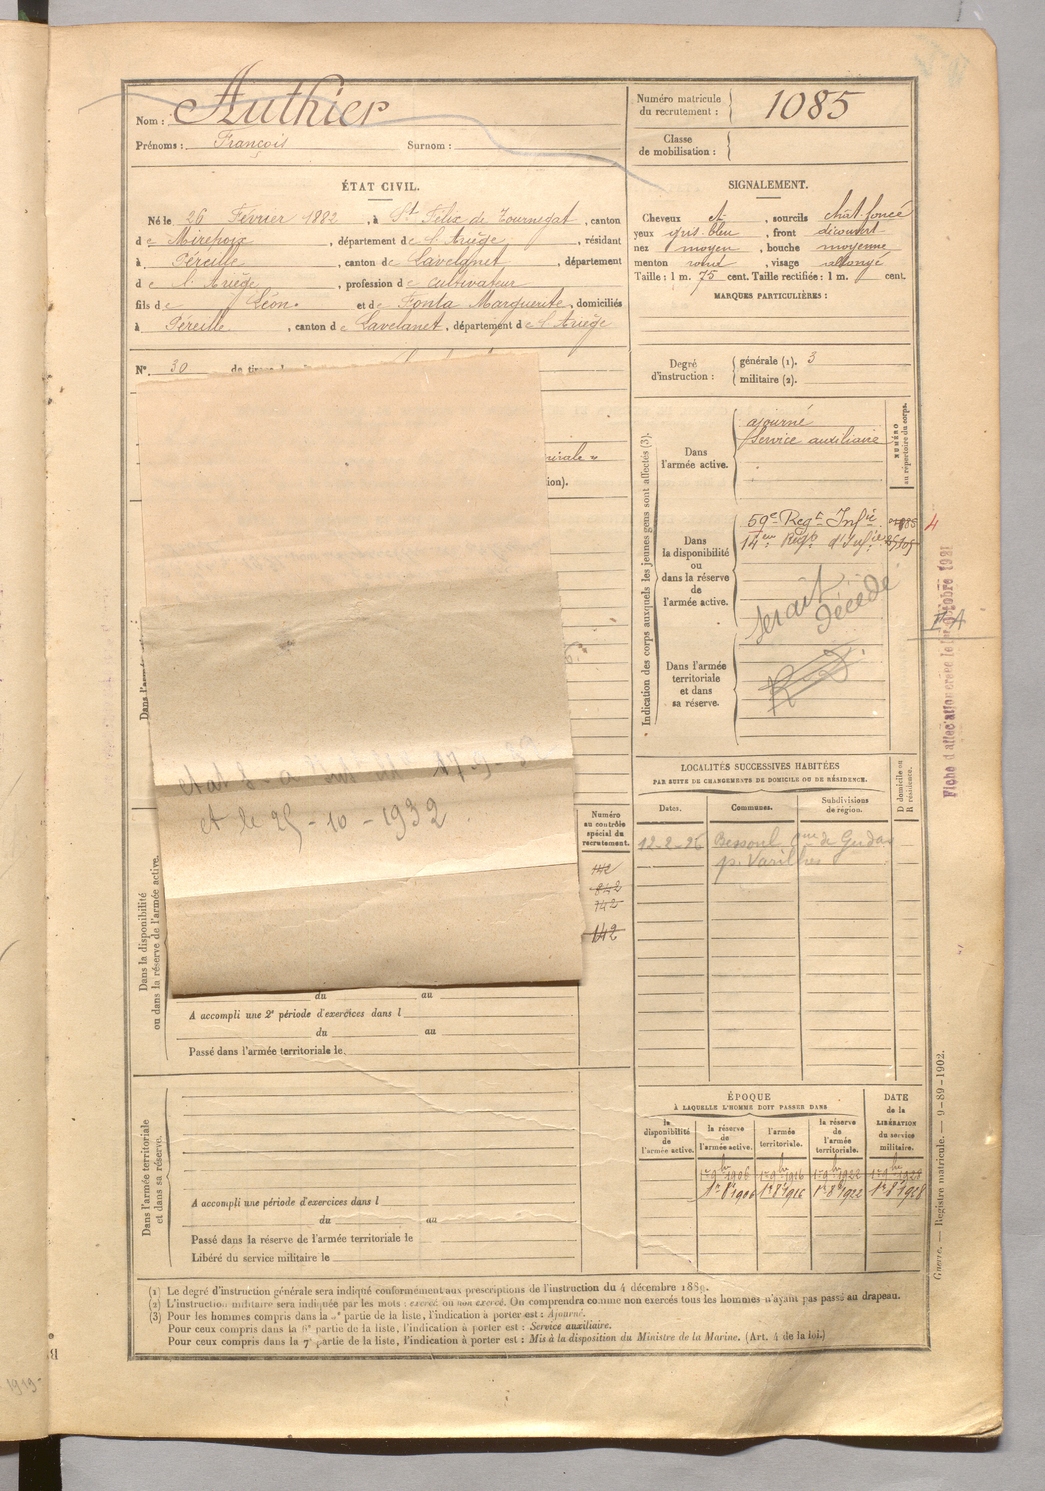 Nom : Authier
Prénoms : François Surnom :
Numéro matricule du recrutement : 1085
Classe de mobilisation :
ÉTAT CIVIL.
Né le 26 Février 1882, à St Félix de Tournegat, canton
de Mirepoix, département de l'Ariège, résidant
à Péreille, canton de Lavelanet, département
de l'Ariège, profession de cultivateur
fils de Léon et de Fonta Marguerite, domiciliés
à Péreille, canton de Lavelanet, département de l'Ariège
SIGNALEMENT.
Cheveux ct, sourcils chât. foncé
yeux gris-bleu, front découvert
nez moyen, bouche moyenne
menton rond, visage allongé
Taille : 1 m. 75 cent. Taille rectifiée : 1 m. cent.
MARQUES PARTICULIÈRES :
No. 30
Degré d'instruction : générale (1). 3
militaire (2).
ion).
Indication des corps auxquels les jeunes gens sont affectés (3).
NUMÉRO au répertoire du corps.
Dans l'armée active.
ajourné
Service auxiliaire
Dans la disponibilité ou dans la réserve de l'armée active.
59e Regt Infie
14em Regt d'Infie
4
serait décédé
Dans l'armée territoriale et dans sa réserve.
Fiche d'affectation créée le 1er octobre 1921
et le 25-10-1932
Numéro au contrôle spécial du recrutement.
142
842
142
142
LOCALITÉS SUCCESSIVES HABITÉES
PAR SUITE DE CHANGEMENTS DE DOMICILE OU DE RÉSIDENCE.
Dates. Communes. Subdivisions de région. D domicile ou R résidence.
12-2-26 Bessoul
p. Varilhes
Dans la disponibilité ou dans la réserve de l'armée active.
du au
A accompli une 2e période d'exercices dans l
du au
Passé dans l'armée territoriale le
Dans l'armée territoriale et dans sa réserve.
A accompli une période d'exercices dans l
du au
Passé dans la réserve de l'armée territoriale le
Libéré du service militaire le
ÉPOQUE
À LAQUELLE L'HOMME DOIT PASSER DANS
DATE de la LIBÉRATION du service militaire.
la disponibilité de l'armée active. la réserve de l'armée active. l'armée territoriale. la réserve de l'armée territoriale.
1er 9bre 1906 1er 9bre 1916 1er 9bre 1922 1er 9bre 1928
1er 8e 1906 1er 8e 1916 1er 8e 1922 1er 8e 1928
Guerre. — Registre matricule. — 9-89-1902.
(1) Le degré d'instruction générale sera indiqué conformément aux prescriptions de l'instruction du 4 décembre 1889.
(2) L'instruction militaire sera indiquée par les mots : exercé ou non exercé. On comprendra comme non exercés tous les hommes n'ayant pas passé au drapeau.
(3) Pour les hommes compris dans la partie de la liste, l'indication à porter est : Ajourné.
Pour ceux compris dans la partie de la liste, l'indication à porter est : Service auxiliaire.
Pour ceux compris dans la 7e partie de la liste, l'indication à porter est : Mis à la disposition du Ministre de la Marine. (Art. 4 de la loi.)